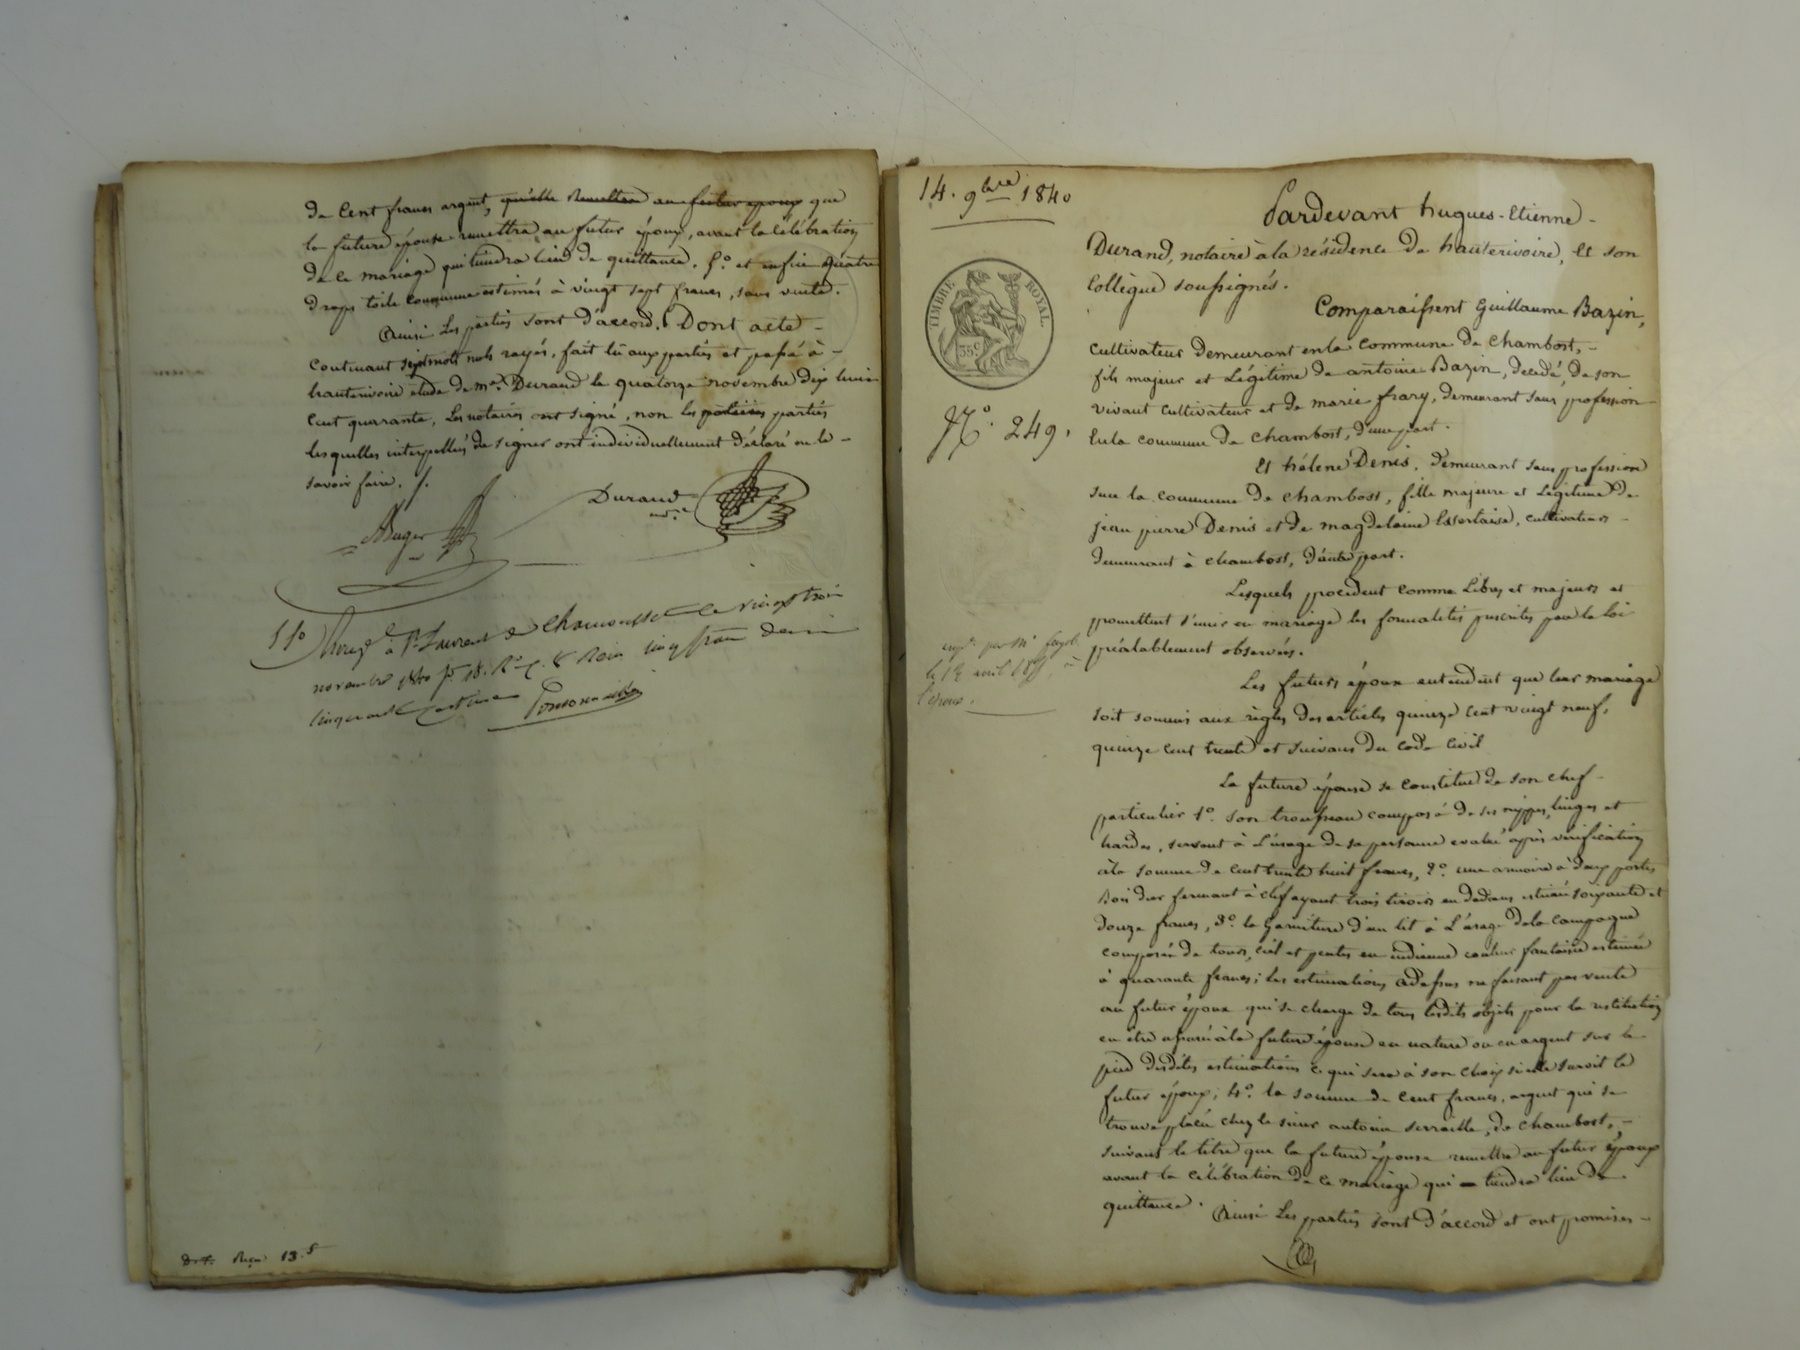 de Cent francs argent, qu'elle remettra au futur époux que
la future épouse remettra au futur époux, avant la célébration
de ce mariage qui tiendra lieu de quittance. 5.° et enfin Quatre
draps toile commune estimés à vingt sept francs, sans vente.
Ainsi Les parties sont d'accord. Dont acte
Contenant sept mots nuls rayés, fait lu aux parties et passé à
hauterivoire étude de me. Durand le quatorze novembre dix huit
Cent quarante, Les notaires ont signé, non les parties
lesquelles interpellés de signer ont individuellement déclaré ne le
savoir faire. /.
Durand
nre
11° Enregé à St Laurent de Chamousset le vingt trois
novembre 1840 f° 18. Ro C. 8 Reçu cinq francs demi
cinquante centimes
Reçu 13.f
14. 9bre 1840
Pardevant hugues-Etienne
Durand, notaire à la résidence de hauterivoire, et son
Collègue soussignés.
TIMBRE ROYAL
35c
Comparaissent Guillaume Bazin,
Cultivateur demeurant en la Commune de Chambost,
fils majeur et Légitime de antoine Bazin, décédé, de son
vivant Cultivateur et de marie frary, demeurant sans profession
N°. 249.
En la commune de Chambost, d'une part.
Et hélene Denis, demeurant sans profession
sur la commune de Chambost, fille majeure et Légitime de
jean pierre Denis et de magdelaine Essertaise, cultivateurs
demeurant à chambost, d'autre part.
Lesquels procèdent comme Libres et majeurs et
promettent s'unir en mariage les formalités prescrites par la loi
préalablement observées.
exp. par Me
le 12 avril
l'époux.
Les futurs époux entendent que leur mariage
soit soumis aux règles des articles quinze cent vingt neuf,
quinze cent trente et suivans du code civil
La future épouse se constitue de son chef
particulier 1°. son trousseau composé de ses nippes, linges et
hardes, servant à L'usage de sa personne evalué après vérification
à la somme de cent trente huit francs, 2°. une armoire à deux portes
Bois dur fermant à clef ayant trois tiroirs en dedans estimée soixante et
douze francs, 3°. la Garniture d'un lit à L'usage de la Campagne
composée de tours, ciel et pentes en indienne couleur fantaisie estimée
à quarante francs; les estimations cidessus ne faisant pas vente
au futur époux qui se charge de tous lesdits objets pour la restitution
en être assurée à la future épouse en nature ou en argent sur le
pied desdites estimations ce qui sera à son choix si elle survit le
futur époux; 4°. la somme de Cent francs, argent qui se
trouve placée chez le sieur antoine serraille, de chambost,
suivant le titre que la future épouse remettra au futur époux
avant la célébration de ce mariage qui tiendra lieu de
quittance.
Ainsi Les parties sont d'accord et ont promises